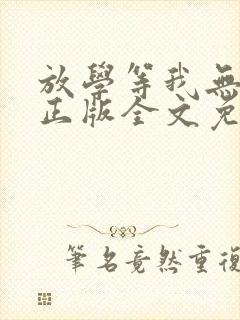 放學等我無
正版全文免
筆名竟然重復